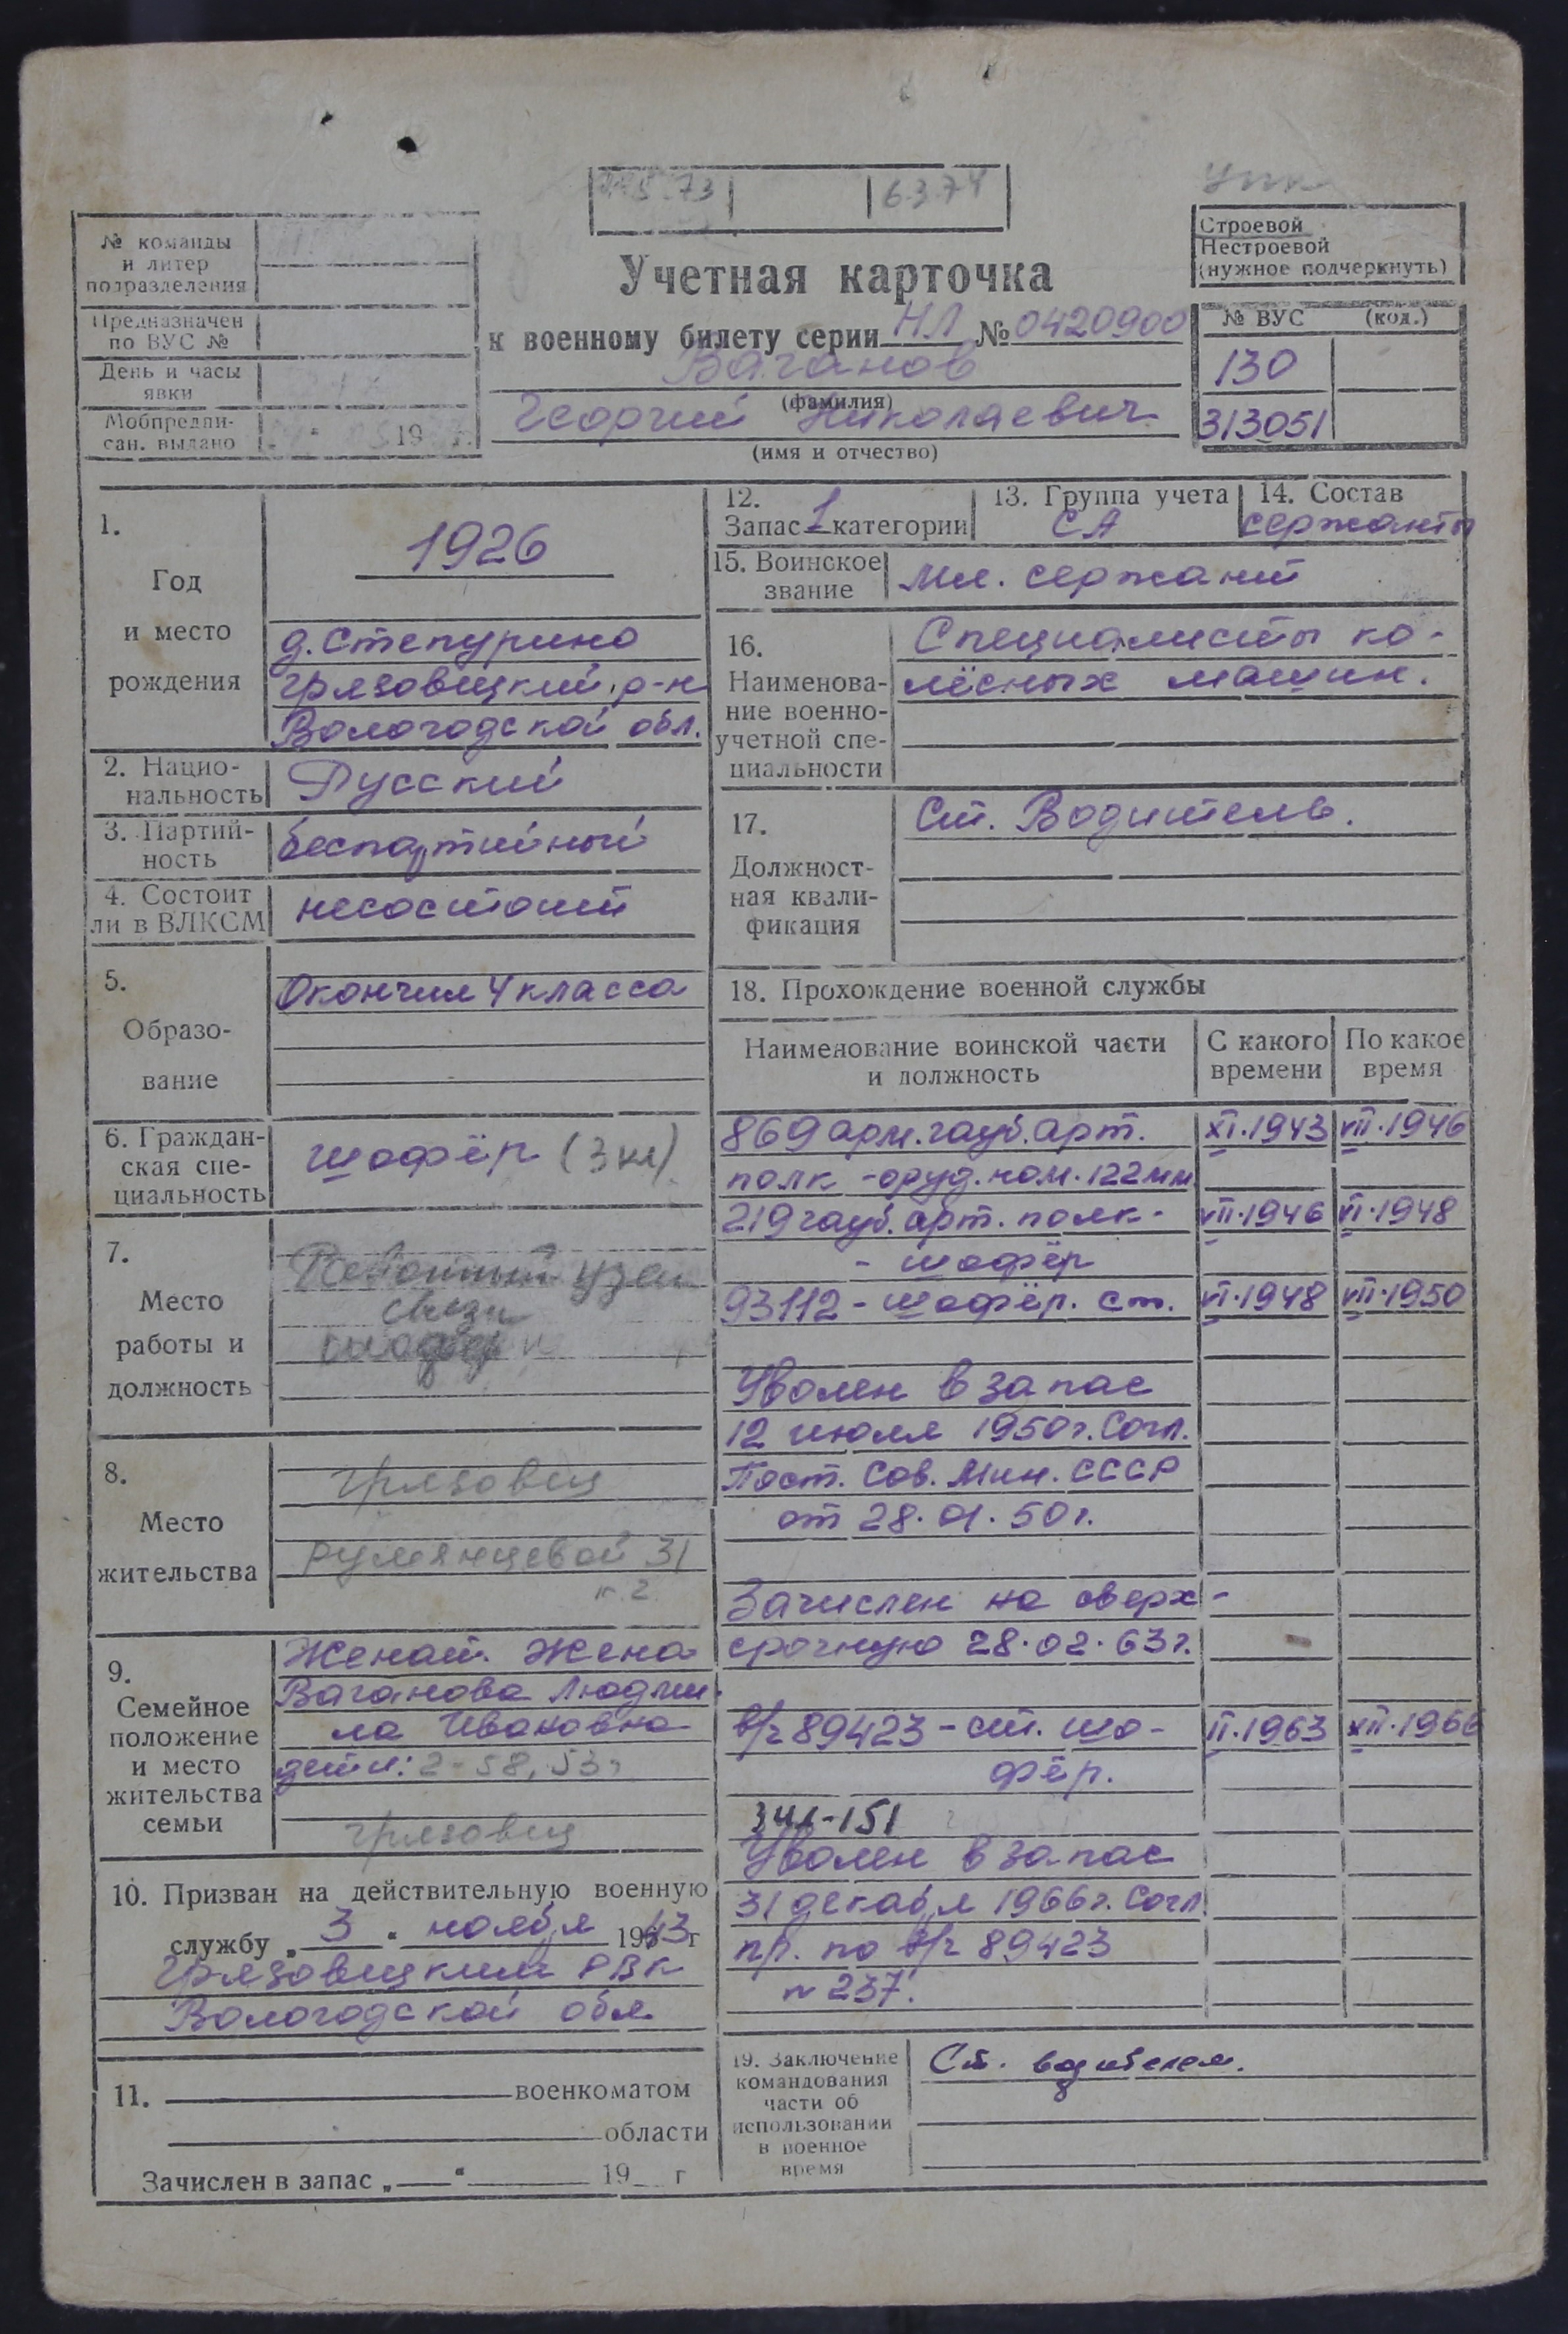 6.3.74
№ команды
и литер
подразделения
Предназначен
по ВУС №
День и часы
явки
Мобпредпи-
сан. выдано
19 г.
Учетная карточка
к военному билету серии НЛ № 0420900
Ваганов
(фамилия)
Георгий Николаевич
(имя и отчество)
Строевой
Нестроевой
(нужное подчеркнуть)
№ ВУС (код.)
130
313051
1.
Год
и место
рождения
1926
д. Степурино
Грязовецкий р-н
Вологодской обл.
2. Нацио-
нальность
Русский
3. Партий-
ность
беспартийный
4. Состоит
ли в ВЛКСМ
несостоит
5.
Образо-
вание
Окончил 4 класса
6. Граждан-
ская спе-
циальность
шофёр (3 кл)
7.
Место
работы и
должность
узел
связи
шофер
8.
Место
жительства
Грязовец
Румянцевой 31
к. 2
9.
Семейное
положение
и место
жительства
семьи
Женат. Жена
Ваганова Людми-
ла Ивановна
дети: 2-58, 53г
Грязовец
10. Призван на действительную военную
службу „3“ ноября 1943 г
Грязовецким РВК
Вологодской обл
11. военкоматом
области
Зачислен в запас „ “ 19 г
12.
Запас 1 категории
13. Группа учета
СА
14. Состав
сержанты
15. Воинское
звание
Мл. сержант
16.
Наименова-
ние военно-
учетной спе-
циальности
Специалисты ко-
лёсных машин.
17.
Должност-
ная квали-
фикация
Ст. Водитель.
18. Прохождение военной службы
Наименование воинской части
и должность
С какого
времени
По какое
время
869 арм. гауб. арт. XI.1943 VII.1946
полк - оруд. ном. 122 мм
219 гауб. арт. полк - VII.1946 VI.1948
- шофёр
93112 - шофёр. ст. VI.1948 VII.1950
Уволен в запас
12 июля 1950г. Согл.
Пост. Сов. Мин. СССР
от 28.01.50г.
Зачислен на сверх-
срочную 28.02.63г.
в/ч 89423 - ст. шо- II.1963 XII.1966
фёр.
ЗИЛ-151
Уволен в запас
31 декабря 1966г. Согл
пр. по в/ч 89423
№ 237.
19. Заключение
командования
части об
использовании
в военное
время
Ст. водителем.